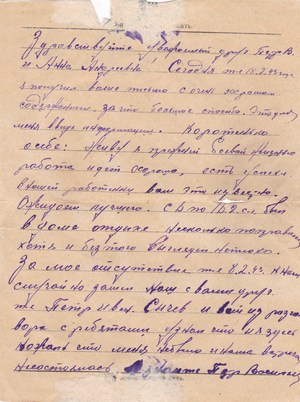 Здравствуйте уважаемый друг Пётр В.
и Анна Андреевна Сегодня же 15.2.43
я получил ваше письмо с очень хорошим
содержанием. За что большое спасто. Это для
меня ввиде информации. Коротенько
о себе: Живу я прежней боевой жизнью
работа идет хорошо, есть успехи
в нашей работы вам это известно.
Ожидаем лучшего. С 6 по 12.2 с.г. был
в доме отдыха несколько поправился
хотя и без того выглядел неплохо.
За мое отсутствие же 8.2.43. к нам
случайно зашел наш с вами друг
же Петр Ив. Сычев и вот из разго
вора с ребятами узнал что я здесь
что меня небыло и наша встреча
несостоялась. Пётр Васильев